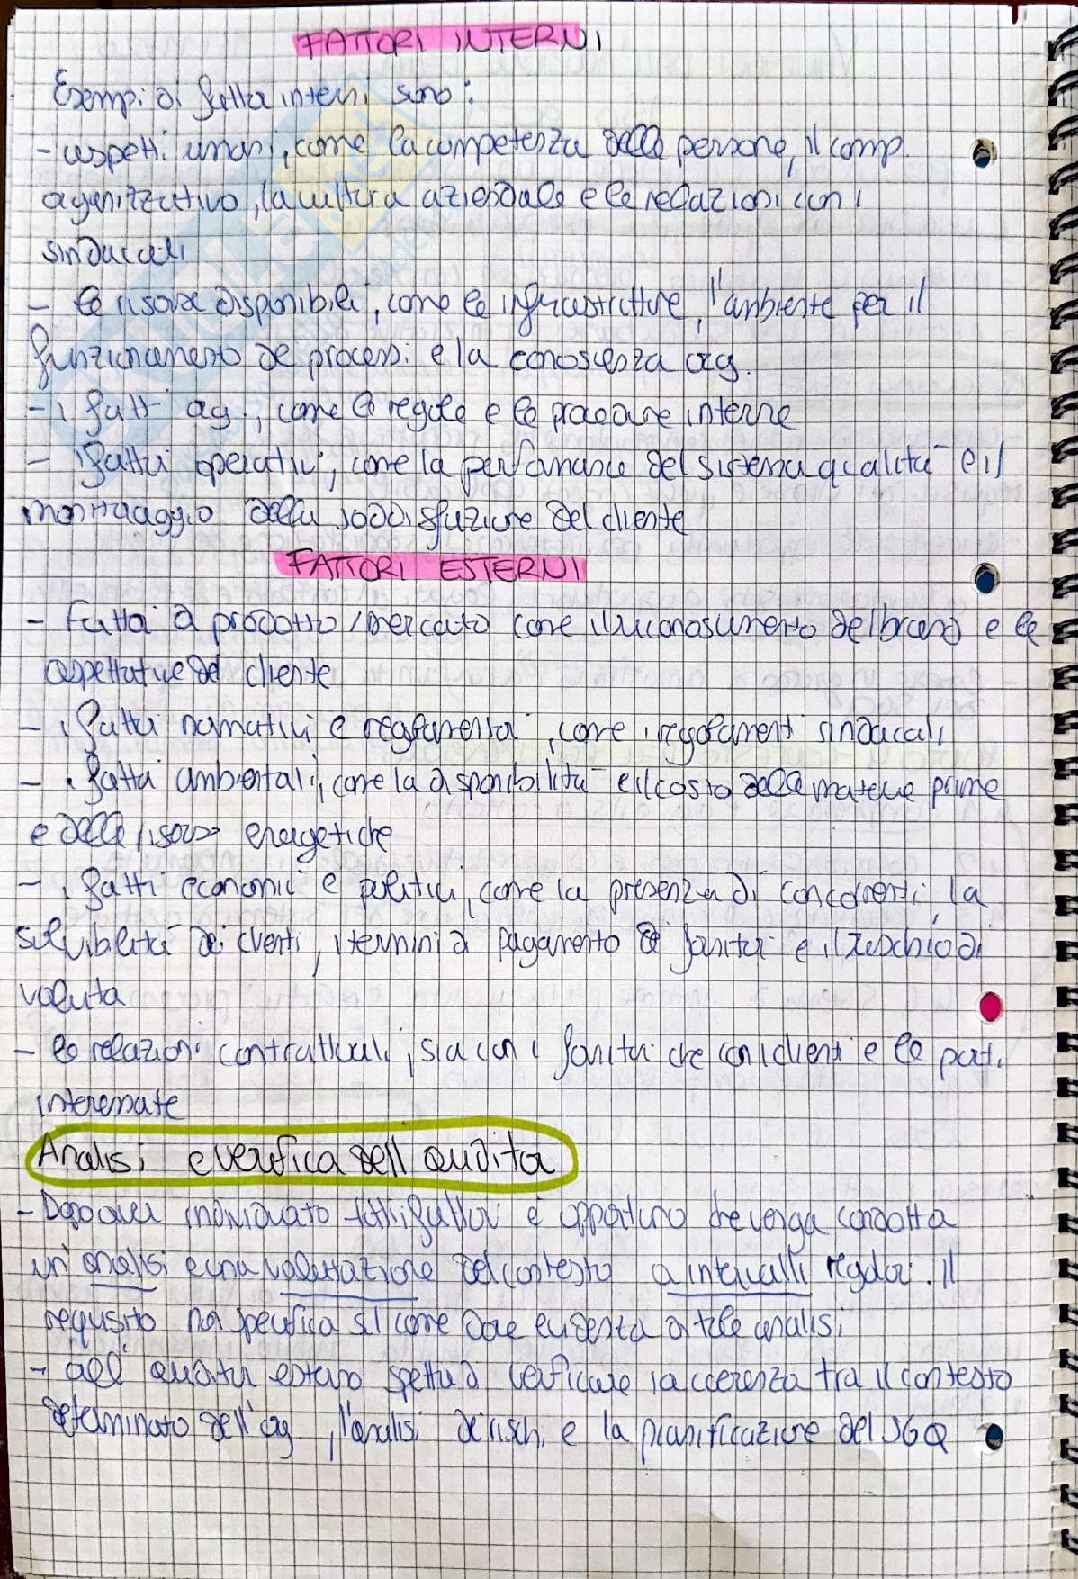 FATTORI INTERNI
Esempi di fattori interni sono:
- aspetti umani, come la competenza delle persone, il comp.
organizzativo, la cultura aziendale e le relazioni con i
sindacali
- le risorse disponibili, come le infrastrutture, l'ambiente per il
funzionamento de processi e la conoscenza org.
- i fatt org., come le regole e le procedure interne
- i fattori operativi, come la performance del sistema qualità e il
monitoraggio della soddisfazione del cliente
FATTORI ESTERNI
- Fattori di prodotto/mercato come il riconoscimento del brand e le
aspettative del cliente
- i fattori normativi e regolamentari, come i regolamenti sindacali
- i fattori ambientali, come la disponibilità e il costo delle materie prime
e delle risorse energetiche
- i fatti economici e politici, come la presenza di concorrenti, la
solvibilità dei clienti, i termini di pagamento di fornitori e il rischio di
valuta
- le relazioni contrattuali, sia con i fornitori che con i clienti e le parti
interessate
Analisi e verifica dell auditor
- Dopo aver individuato tutti i fattori è opportuno che venga condotta
un'analisi e una valutazione del contesto a intervalli regolari. Il
requisito non specifica sl come dare evidenza di tale analisi
- all' auditor esterno spetta di verificare la coerenza tra il contesto
determinato dell'org, l'analisi dei rischi e la pianificazione del SGQ